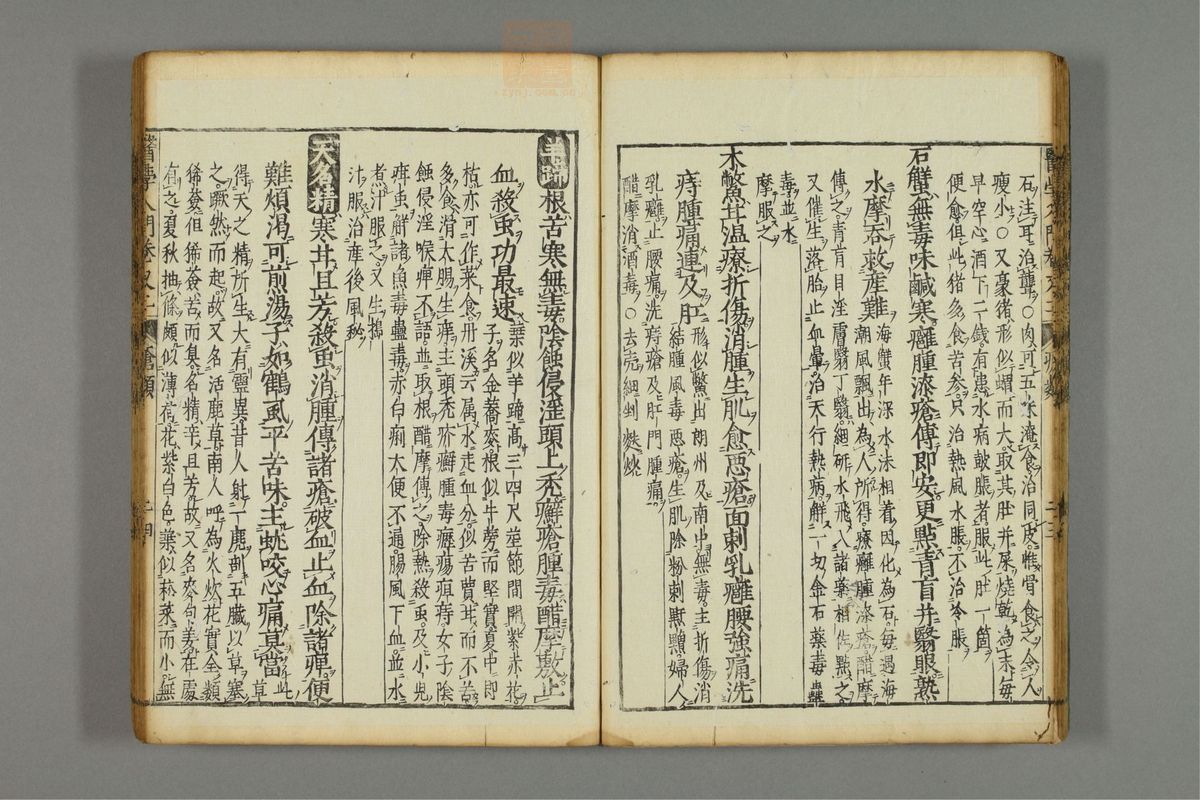 石主耳治聾○肉可五味淹食治同皮惟骨食之令人
瘦小○又豪豬形似蝟而大取其肚并屎燒乾為末每
早空心酒下二錢有患水病皷脹者服此肚一箇
便愈但此猪多食苦參只治熱風水脹不治冷脹
石蟹無毒味鹹寒癰腫漆瘡傅即安更點青盲并翳眼熟
水摩吞救產難
海蟹年深水沫相着因化為石每遇海
潮風飄出為人所得療癰腫漆瘡醋摩
傅之青盲目淫膚翳丁翳細研水飛入諸藥相佐點之
又催生落胎止血暈治天行熱病解一切金石藥毒蠱
毒並水
摩服之
木鱉甘温療折傷消腫生肌愈惡瘡面刺乳癰腰強痛洗
痔腫痛連及肛
形似鱉出朗州及南中無毒主折傷消
結腫風毒惡瘡生肌除粉刺䵟䵳婦人
乳癰止腰痛洗痔瘡及肛門腫痛
醋摩消酒毒○去売細剉麩炒
羊蹄根苦寒無毒陰蝕侵淫頭上禿癬瘡腫毒醋磨敷止
血殺虫功最速
葉似羊蹄高三四尺莖節間開紫赤花
子名金蕎麥根似牛蒡而堅實夏中即
枯亦可作菜食丹溪云属水走血分似苦蕒甘而不苦
多食滑大腸生痒主頭禿疥癬腫毒癧瘍疽痔女子陰
蝕侵淫喉痺不語並取根醋摩傅之除熱殺虫及小児
疳虫解諸魚毒蠱毒赤白痢大便不通腸風下血並水
煮汁服之又生搗
汁服治産後風秘
天名精寒甘且芳殺虫消腫傅諸瘡破血止血除諸痺便
難煩渴可煎湯子如鶴虱平苦味主蚘咬心痛莫當
此草
得天之精所生大有靈異昔人射一鹿剖五臟以草塞
之蹶然而起故又名活鹿草南人呼為火炊花實全類
豨薟但豨薟苦而臭名精辛且芳故又名麥句姜在處
有之夏秋抽條頗似薄荷花紫白色葉似菘菜而小無